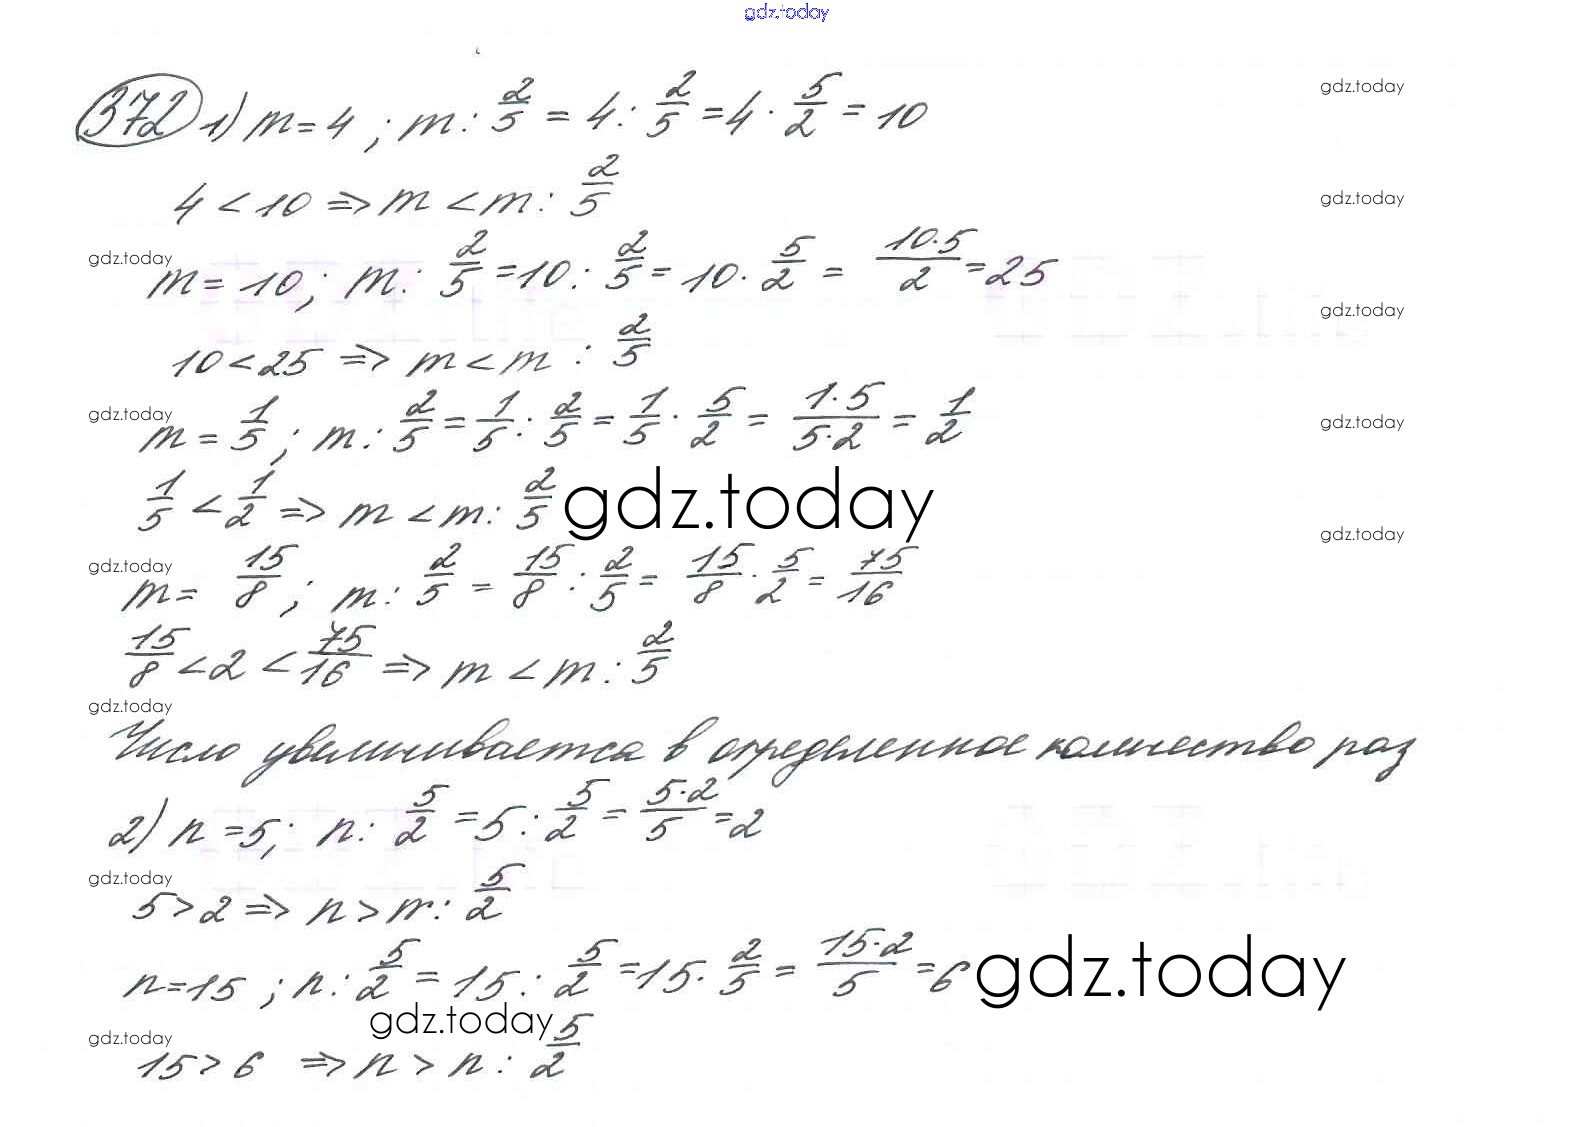 gdz.today
372 1) m = 4 ; m : 2/5 = 4 : 2/5 = 4 · 5/2 = 10
gdz.today
4 < 10 => m < m : 2/5
gdz.today
gdz.today
m = 10 ; m : 2/5 = 10 : 2/5 = 10 · 5/2 = 10·5/2 = 25
gdz.today
10 < 25 => m < m : 2/5
gdz.today
m = 1/5 ; m : 2/5 = 1/5 : 2/5 = 1/5 · 5/2 = 1·5/5·2 = 1/2
gdz.today
1/5 < 1/2 => m < m : 2/5
gdz.today
gdz.today
gdz.today
m = 15/8 ; m : 2/5 = 15/8 : 2/5 = 15/8 · 5/2 = 75/16
15/8 < 2 < 75/16 => m < m : 2/5
gdz.today
Число увеличивается в определенное количество раз
2) n = 5 ; n : 5/2 = 5 : 5/2 = 5·2/5 = 2
gdz.today
5 > 2 => n > n : 5/2
n = 15 ; n : 5/2 = 15 : 5/2 = 15 · 2/5 = 15·2/5 = 6
gdz.today
gdz.today
gdz.today
15 > 6 => n > n : 5/2